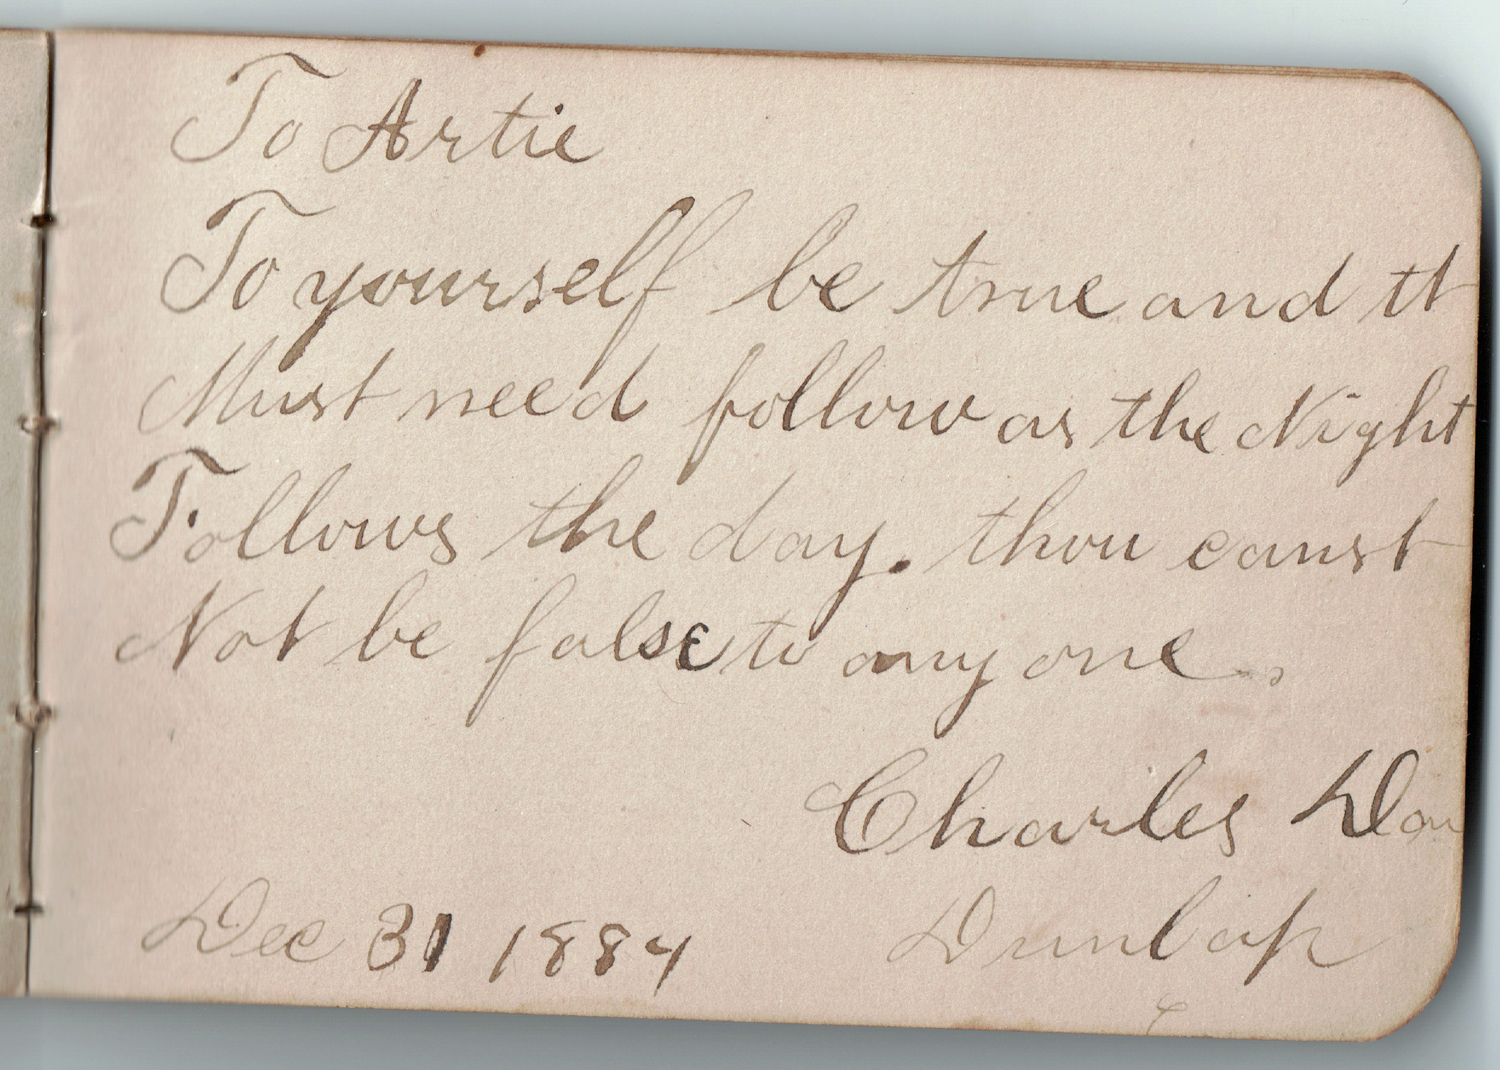 To Artie
To yourself be true and it
Must need follow as the Night
Follows the day. thou canst
Not be false to any one.
Charles
Dec 31 1884 Dunlap